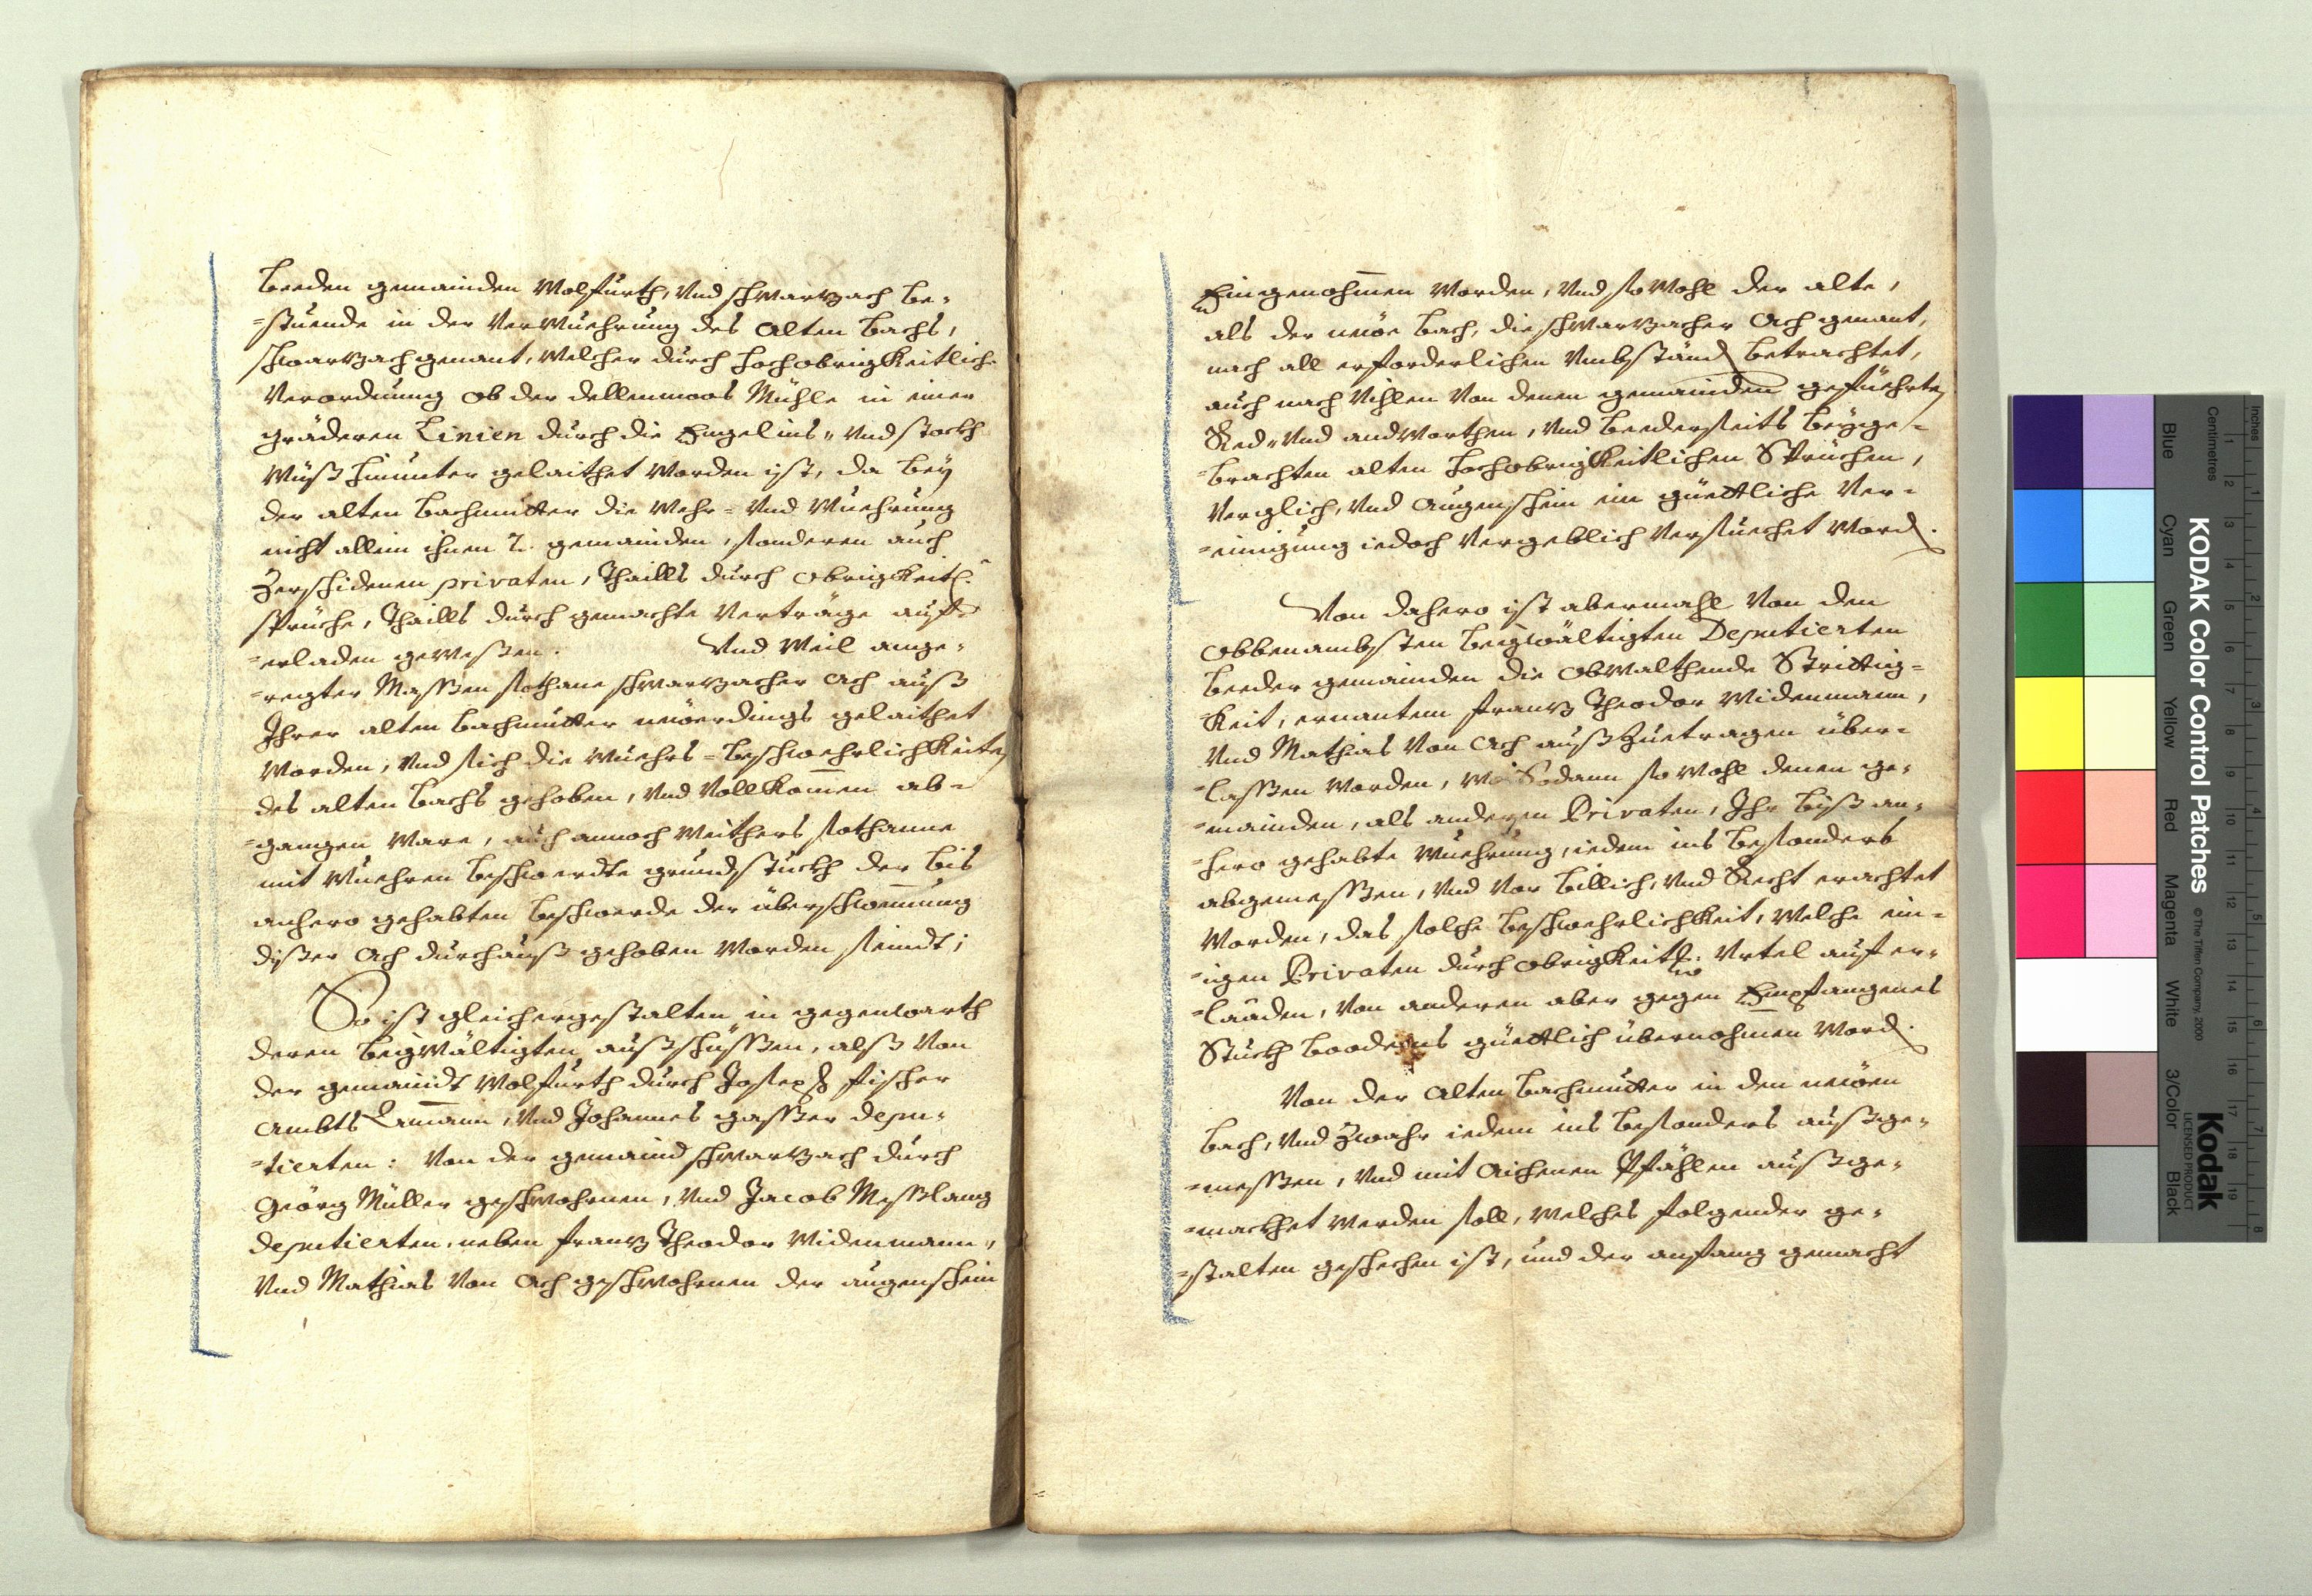 beeden gemainden Wolfurth, und schwarzach be-
=stuende in der Verwuehrung des alten bachs,
schwarzach genant, welcher durch hochobrigkeitliche
Verordnung ob der dellenmoos Mühle in einer
gräderen Linien durch die Engelins,, und stockh
wüß hinunter gelaithet worden ist, da beÿ
der alten bachmutter die Wehr= und Wuehrung
nicht allein ihnen 2. gemainden, sonderen auch
Zerschidenen privaten, thaills durch obrigkeitl.
sprüche, thaills durch gemachte Verträge auf-
=erladen geweßen. Und weil ange-
=regter Massen sothane schwarzacher ach auß
Ihrer alten bachmutter neüerdings gelaithet
worden, und sich die wuehrs=beschwehrlichkeiten
des alten bachs gehoben, und vollkomen ab-
=gangen ware, auch annoch weithers sothanne
mit Wuehren beschwerdte grundstuckh der bis
anhero gehabten beschwerde der überschwemung
dißer ach durchauß gehoben worden seindt;
So ist gleichergestalten in gegenwarth
deren begwältigten außschüssen, alß von
der gemaindt Wolfurth durch Joseph fischer
ambts Amann, und Johannes gasser depu-
=tierten: Von der gemaind schwarzach durch
Geörg Müller geschwohrnen, und Jacob Messlang
deputierten, neben franz Theodor Widenmann,,
und Mathias von ach geschwohrnen der augenschein
Eingenohmen worden, und so wohl der alte,
als der neüe bach, die schwarzacher ach genant,
nach all erforderlichen umbständ betrachtet,
auch nach vihlen von denen gemainden gefüehrten
Red,, und andworthen, und beederseits beÿge-
=brachten alten hochobrigkeitlichen Sprüchen,
Verglich, und augenschein ein güettliche Ver-
=einigung iedoch vergeblich versuechet word.
Von dahero ist abermahl von den
obbenambsten begwältigten Deputierten
beeder gemainden die obwalthende Strittig-
=keit, ernantem franz Theodor Widenmann,
und Mathias von ach auß Zuetragen über-
=lassen worden, wo Sodann so wohl denen ge-
=mainden, als anderen Privaten, Ihr bißan-
=hero gehabte wuehrung, iedem ins besonders
abgemessen, und vor billich, und Recht erachtet
worden, das solche beschwehrlichkeit, welche ein-
=igen Privaten durch obrigkeitl: Urtel aufer-
=lääden, von anderen aber gegen Empfangenes
Stuckh boodens güettlich übernohmen word.
Von der alten bachmutter in den neüen
bach, und Zwahr iedem ins besonders außge-
=messen, und mit aichenen Pfählen außge-
=mackhet werden soll, welches folgender ge-
=stalten geschechen ist, und der anfang gemacht
Inches
Centimetres
KODAK Color Control Patches
© The Tiffen Company, 2000
Kodak
LICENSED PRODUCT
Blue
Cyan
Green
Yellow
Red
Magenta
White
3/Color
Black